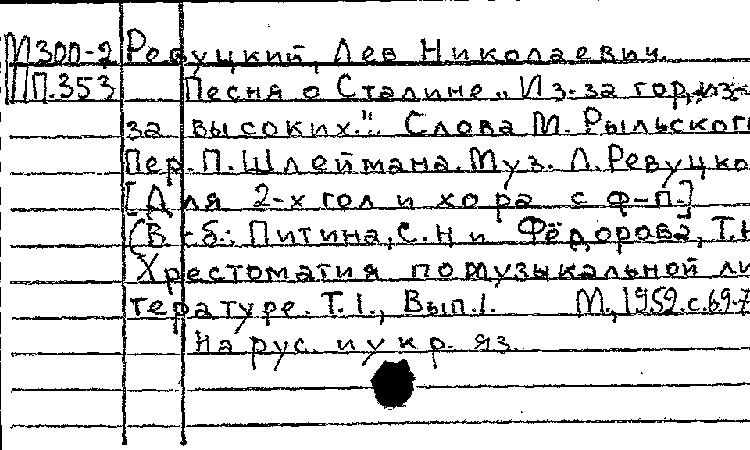 М300-2 Ревуцкий, Лев Николаевич.
ПП.353 Песня о Сталине „Из-за гор, из-
за высоких.". Слова М. Рыльского
Пер. П. Шлеймана. Муз. Л. Ревуцко
[Для 2-х гол и хора с ф-п.]
(В сб.: Питина, С. Н и Фёдорова, Т. Н
Хрестоматия по музыкальной ли
тературе. Т. 1., Вып. 1. М., 1952. с. 69-7
На рус. и укр. яз.